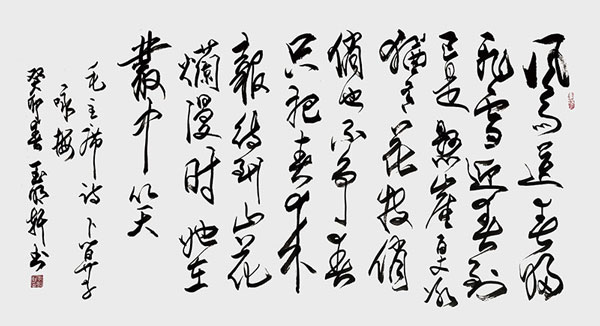 风雨送春歸
飛雪迎春到
已是懸崖百丈冰
猶有花枝俏
俏也不争春
只把春来
報待到山花
爛漫时她在
叢中笑
毛主席诗卜算子
咏梅
癸卯春 书